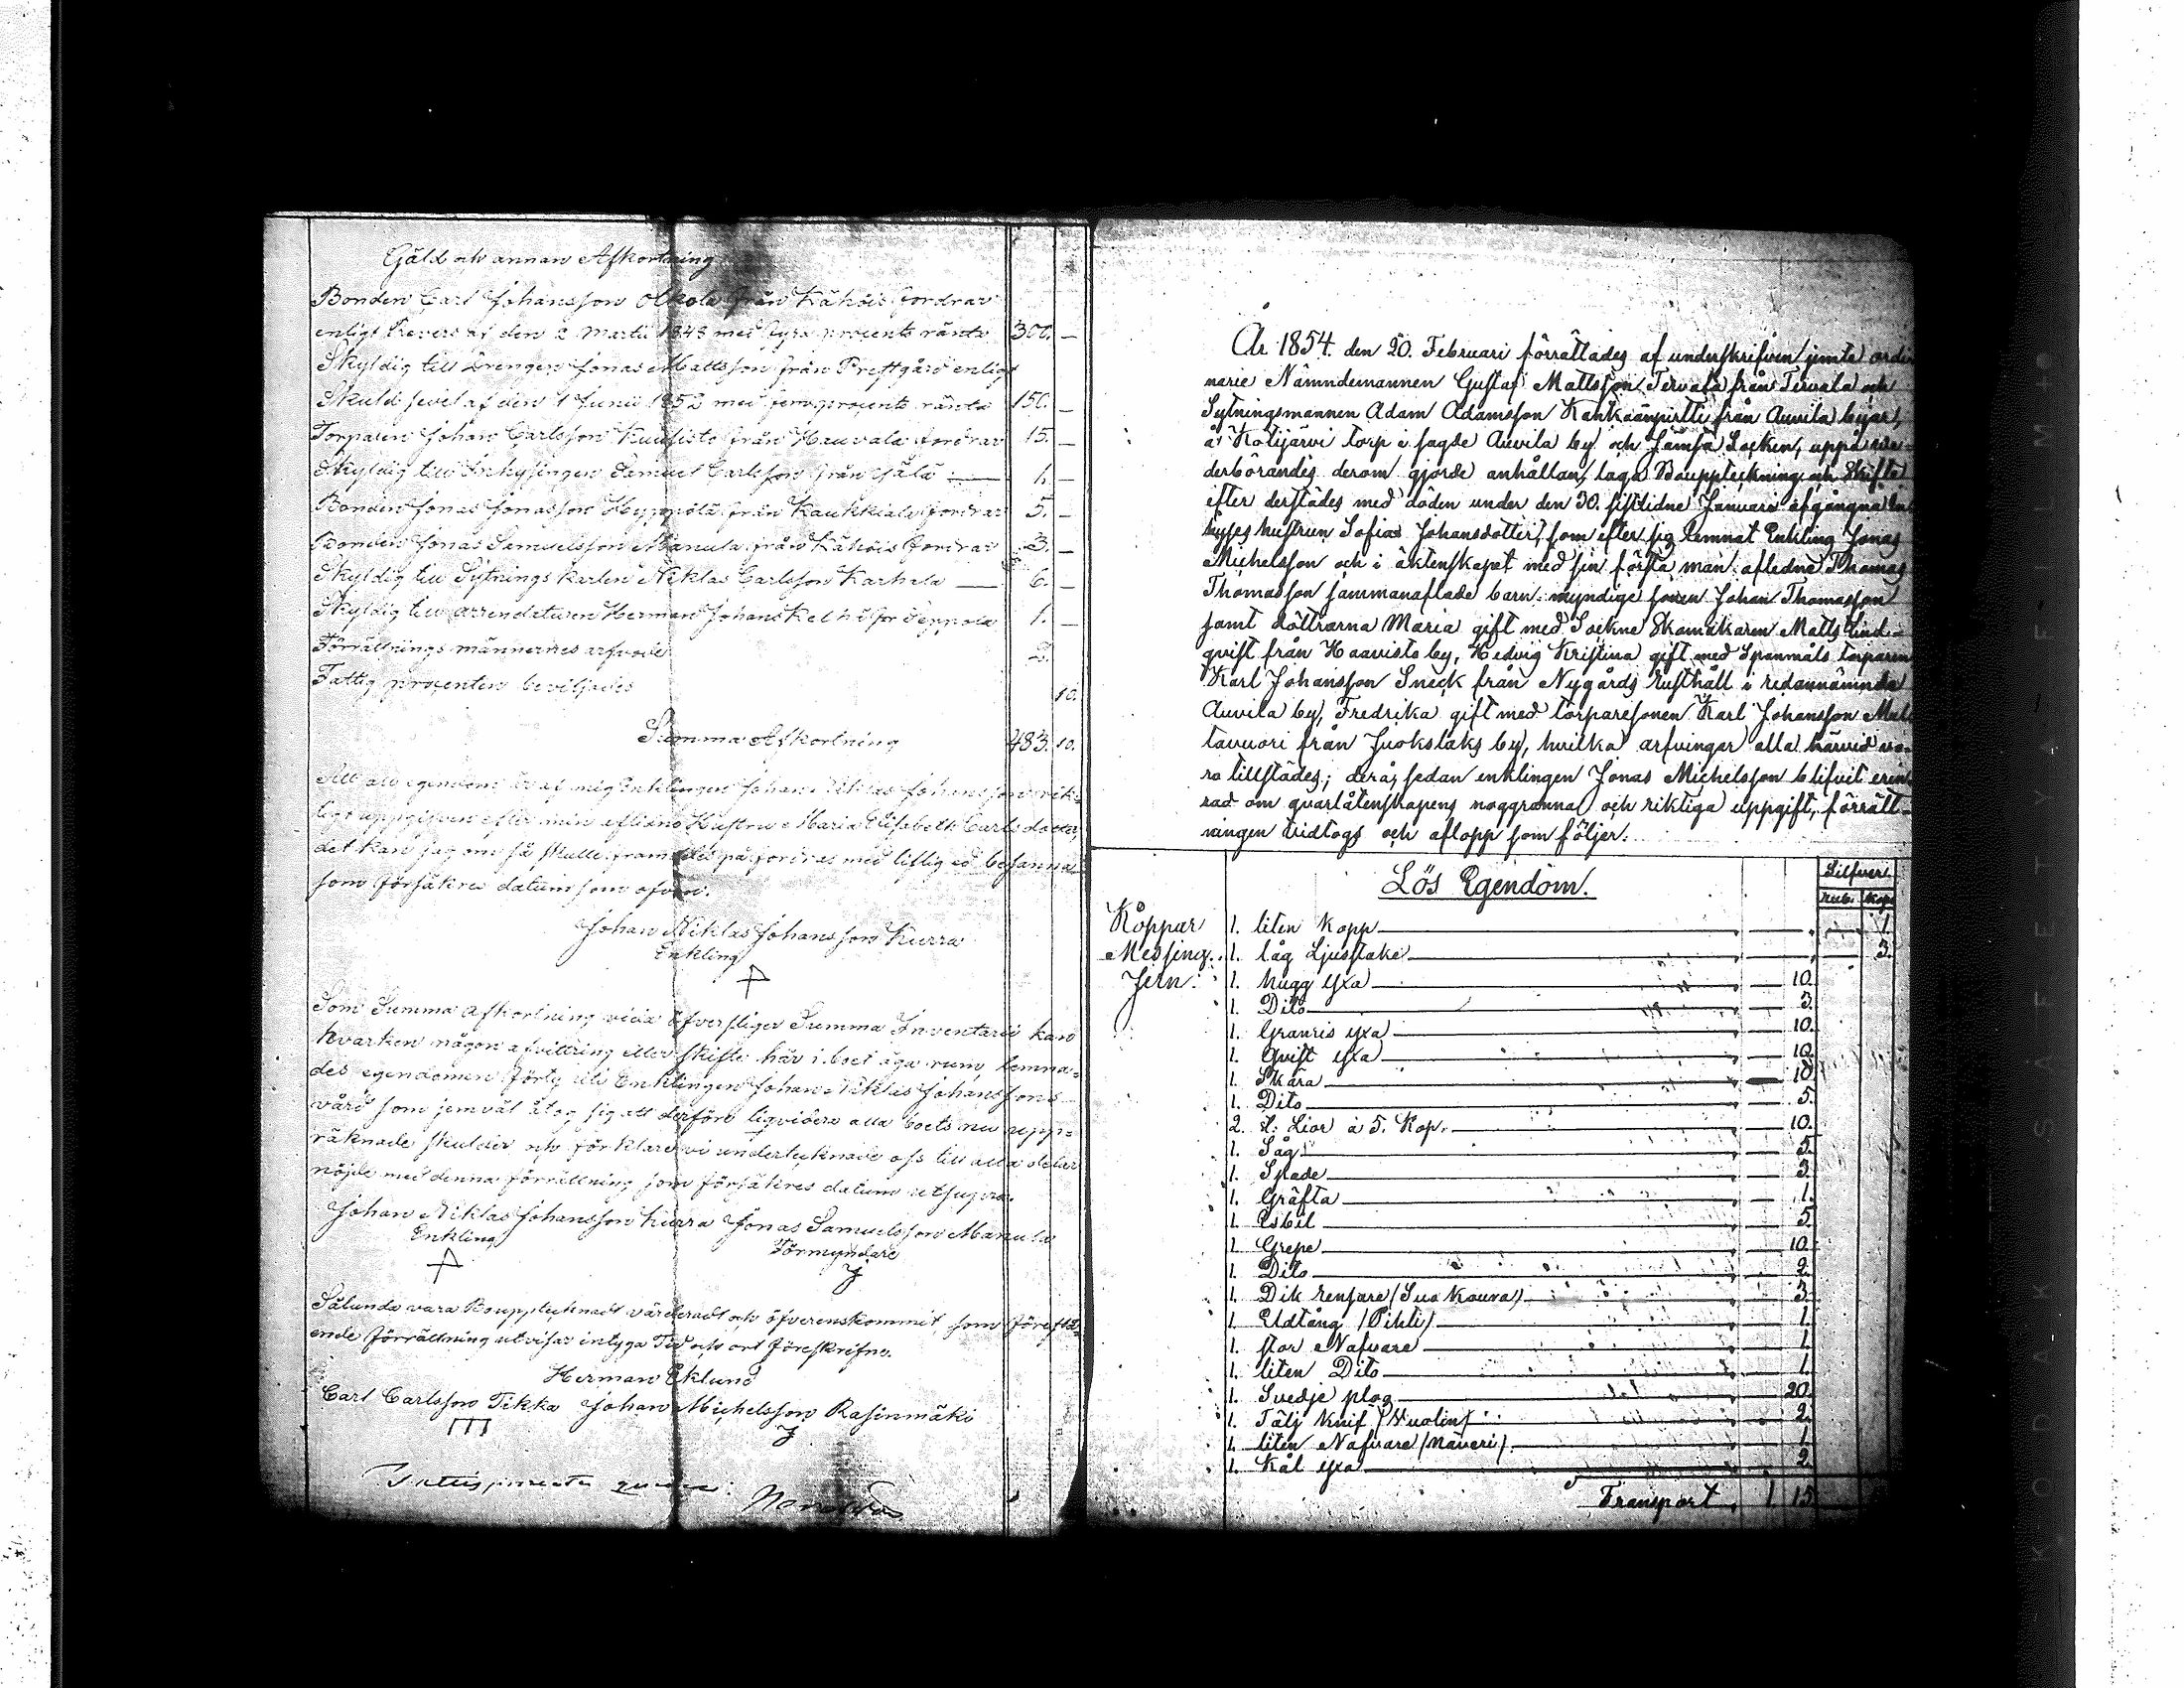 Gäld och annan Afkortning
Bonden Carl Johansson Olkola från Kähöis fordrar
enligt Revers af den 2 Martii 1848 med fyra procents ränta 300. —
Skyldig till Drengen Jonas Mattsson från Prestgård enligt
Skuldsevel af den 1 Junii 1852 med fem procents ränta 150. —
Torparen Johan Carlsson Kuusisto från Hauvala fordrar 15. —
Skyldig till Inhysingen Samuel Carlsson från 1. —
Bonden Jonas Jonasson Hyppölä från Kaukkiala fordrar 5. —
Bonden Jonas Samuelsson Manula från Kähöis fordrar 3. —
Skyldig till Sytnings karlen Niklas Carlsson Karhula — 6. —
Skyldig till arrendatorn Herman Johans Seppola 1. —
Förrättnings männernes arfvode 2.
Fattig procenten beviljades 10.
Summa Afkortning 483. 10.
Att all egendom är af mig Enklingen Johan Niklas Johansson rik-
tigt uppgifven efter min aflidna Hustru Maria Elisabeth Carlsdotter,
det kan jag om så skulle framdeles på fordras med liflig ed besanna
som försäkres datum som ofvan.
Johan Niklas Johansson Kurra
Enkling
Som Summa afkortning vida öfverstiger Summa Inventarii kan
hvarken någon afvittring eller skifte här i boet äga rum, lemna-
des egendomen förty till Enklingen Johan Niklas Johanssons
vård som jemväl åtog sig att derföre liqvidera alla boets nu upp-
räknade skulder och förklare vi undertecknade oss till alla delar
nöjde med denna förrättning som försäkres datum ut supra.
Johan Niklas Johansson Kurra Jonas Samuelsson Manula
Enkling Förmyndare
Sålunda vara Bouppteknadt värderadt och öfverenskommit, som förestå-
ende förrättning utvisar intyga Tid och ort föreskrifne.
Herman Eklund
Carl Carlsson Tikka Johan Michelsson Rasinmäki
År 1854. den 20. Februari förrättades af underskrifven jemte ordi
narie Nämndemannen Gustaf Mattsson Tervala från Tervala och
Sytningsmannen Adam Adamsson Kankaanpirtti från Auvila byar,
å Kotijärvi torp i sagde Auvila by och Jämsä Socken, uppå ve-
derbörandes derom gjorde anhållan, laga Bouppteckning och Skifte
efter derstädes med döden under den 30. sistlidne Januari afgångna In
hyses hustrun Sofia Johansdotter, som efter sig lemnat Enkling Jonas
Michelsson och i äktenskapet med sin första man afledne Thomas
Thomasson sammanaflade barn: myndige sonen Johan Thomasson
samt döttrarna Maria gift med Sockne Skomakaren Matts Lind-
qvist från Haavisto by, Hedvig Kristina gift med Spanmåls torparen
Karl Johansson Sneck från Nygårds rusthåll i redannämnda
Auvila by, Fredrika gift med torparesonen Karl Johansson Mul
tavuori från Juokslaks by, hvilka arfvingar alla härvid vo-
ro tillstädes; derå, sedan enklingen Jonas Michelsson blifvit erin
rad om qvarlåtenskapens noggranna och riktiga uppgift, förrätt-
ningen vidtogs och aflopp som följer:
Lös Egendom. Silfver.
rub. kop.
Koppar 1. liten Kopp — 1.
Messing. 1. låg Ljusstake — 3.
Jern: 1. hugg yxa — 10.
1. Dito — 3.
1. Granris yxa — 10.
1. Qvist yxa — 10.
1. Skära — 10.
1. Dito — 5.
2. st. Liar à 5. Kop. — 10.
1. Såg — 5.
1. Spade — 3.
1. Gräfta — 1.
1. Esbil — 5.
1. Grepe — 10.
1. Dito — 2.
1. Dik rensare (Suo Kouva) — 3.
1. Eldtång (Pihti) — 1.
1. stor Nafvare — 1.
1. liten Dito — 1.
1. Svedje plog — 20.
1. Tälj knif (Vuolin) — 2.
1. liten Nafvare (näveri) — 1.
1. Kål yxa — 2.
Transport, 1. 15.
KODAK SAFETY FILM